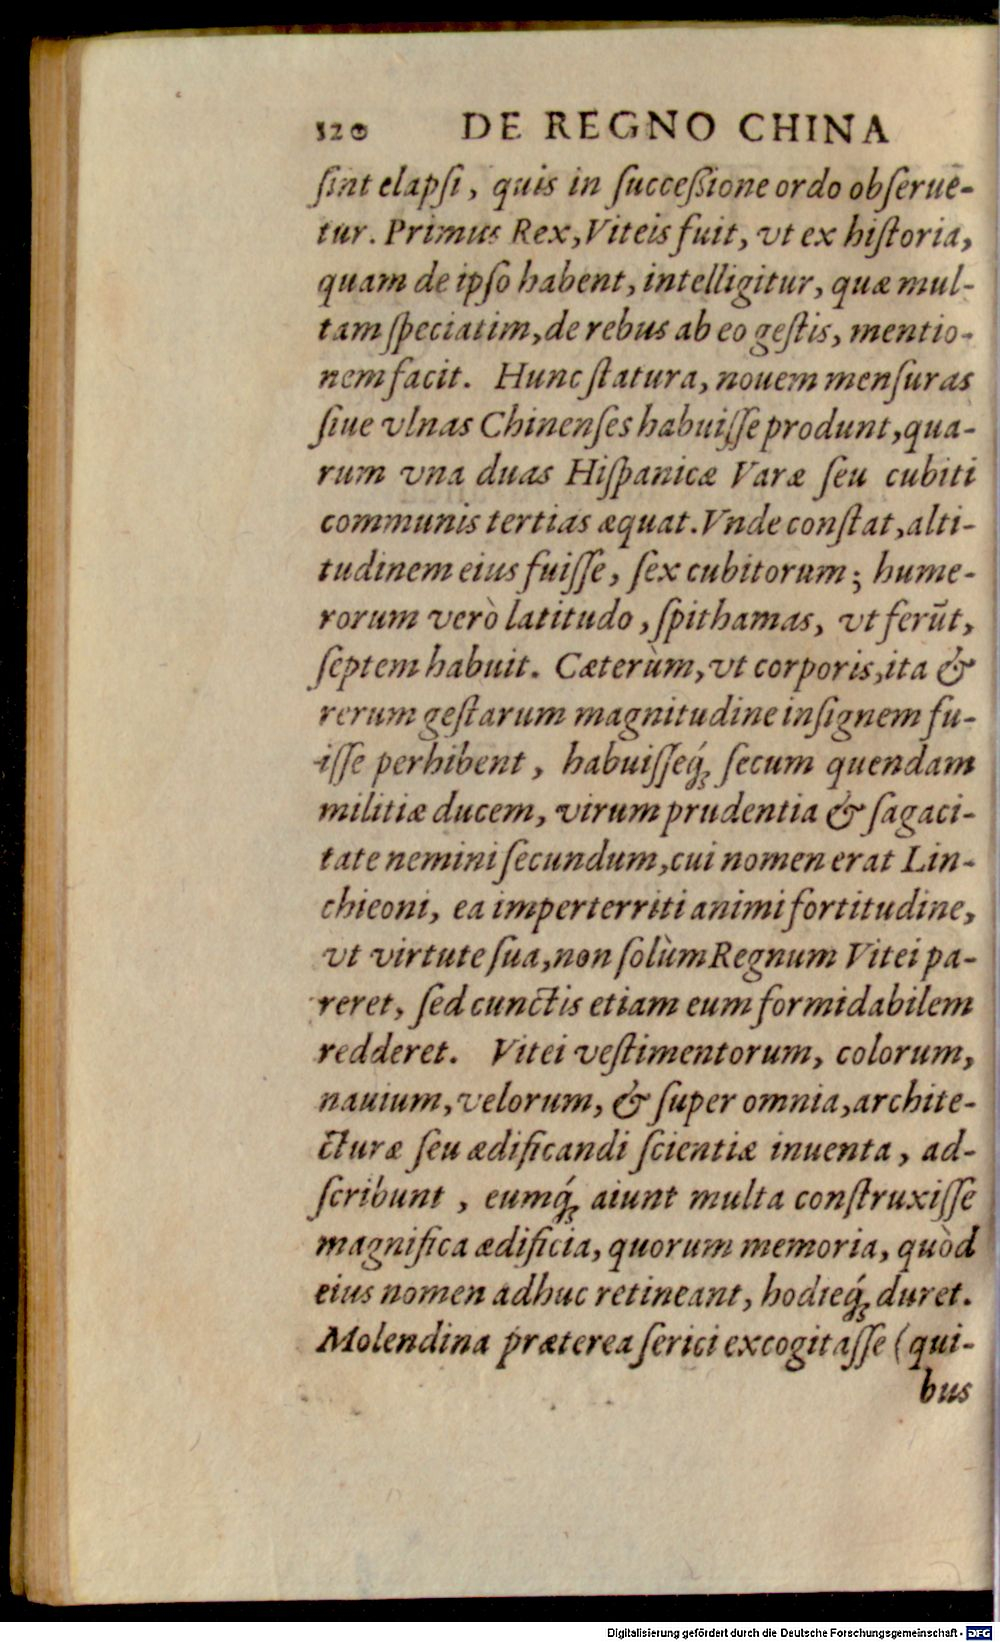 120 DE REGNO CHINA
ſint elapſi, quis in ſucceſsione ordo obſerue-
tur. Primus Rex, Viteis fuit, vt ex hiſtoria,
quam de ipſo habent, intelligitur, quæ mul-
tam ſpeciatim, de rebus ab eo geſtis, mentio-
nem facit. Hunc ſtatura, nouem menſuras
ſiue vlnas Chinenſes habuiſſe produnt, qua-
rum vna duas Hiſpanicæ Varæ ſeu cubiti
communis tertias æquat. Vnde conſtat, alti-
tudinem eius fuiſſe, ſex cubitorum; hume-
rorum verò latitudo, ſpithamas, vt ferūt,
ſeptem habuit. Cæterùm, vt corporis, ita &
rerum geſtarum magnitudine inſignem fu-
iſſe perhibent, habuiſſeq́ꝫ ſecum quendam
militiæ ducem, virum prudentia & ſagaci-
tate nemini ſecundum, cui nomen erat Lin-
chieoni, ea imperterriti animi fortitudine,
vt virtute ſua, non ſolùm Regnum Vitei pa-
reret, ſed cunctis etiam eum formidabilem
redderet. Vitei veſtimentorum, colorum,
nauium, velorum, & ſuper omnia, archite-
cturæ ſeu ædificandi ſcientiæ inuenta, ad-
ſcribunt, eumq́ꝫ aiunt multa conſtruxiſſe
magnifica ædificia, quorum memoria, quòd
eius nomen adhuc retineant, hodieq́ꝫ duret.
Molendina præterea ſerici excogitaſſe (qui-
bus
Digitalisierung gefördert durch die Deutsche Forschungsgemeinschaft - DFG